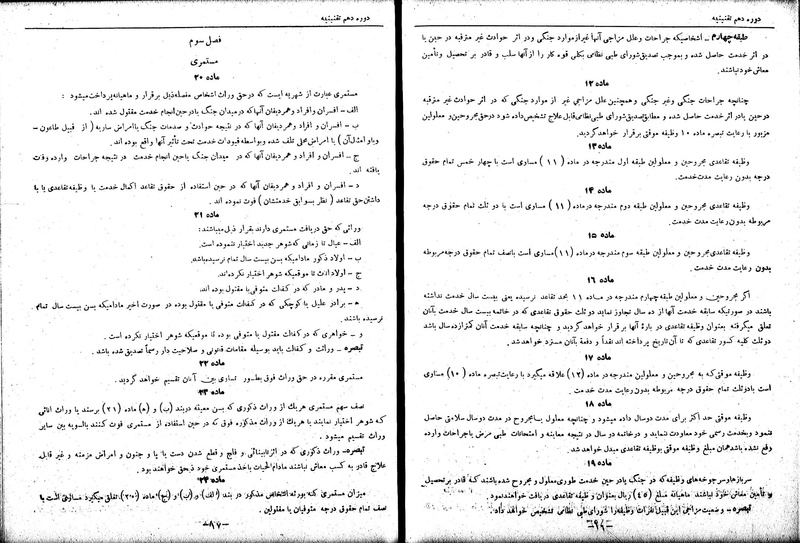 دوره دهم تقنینیه
طبقه چهارم ــ اشخاصیکه جراحات وعلل مزاجی آنها غیر از موارد جنگی ودر اثر حوادث غیر مترقبه در حین یا
در اثر خدمت حاصل شده و بموجب تصدیق شورای طبی نظامی بکلی قوه کار را از آنها سلب و قادر بر تحصیل وتأمین
معاش خود نباشند.
ماده ۱۲
چنانچه جراحات جنگی وغیر جنگی و همچنین علل مزاجی غیر از موارد جنگی که در اثر حوادث غیر مترقبه
درحین یا در اثر خدمت حاصل شده و مطابق تصدیق شورای طبی نظامی قابل علاج تشخیص داده شود درحق مجروحین و معلولین
مزبور با رعایت تبصره ماده ۱۰ وظیفه موقتی برقرار خواهد گردید.
ماده ۱۳
وظیفه تقاعدی مجروحین و معلولین طبقه اول مندرجه در ماده (۱۱) مساوی است با چهار خمس تمام حقوق
درجه بدون رعایت مدت خدمت.
ماده ۱۴
وظیفه تقاعدی مجروحین و معلولین طبقه دوم مندرجه در ماده (۱۱) مساوی است با دو ثلث تمام حقوق درجه
مربوطه بدون رعایت مدت خدمت.
ماده ۱۵
وظیفه تقاعدی مجروحین و معلولین طبقه سوم مندرجه در ماده (۱۱) مساوی است بانصف تمام حقوق درجه مربوطه
بدون رعایت مدت خدمت.
ماده ۱۶
اگر مجروحین و معلولین طبقه چهارم مندرجه در ماده ۱۱ بحد تقاعد نرسیده یعنی بیست سال خدمت نداشته
باشند در صورتیکه سابقه خدمت آنها از ده سال تجاوز نماید دو ثلث حقوق تقاعدی که در خاتمه بیست سال خدمت بآنان
تعلق میگرفته بعنوان وظیفه تقاعدی در بارۀ آنها برقرار خواهد گردید و چنانچه سابقه خدمت آنان کمتر از ده سال باشد
دو ثلث کلیه کسور تقاعدی که تا آن تاریخ پرداخته اند نقداً و دفعة بآنان مسترد خواهد شد.
ماده ۱۷
وظیفه موقتی که به مجروحین و معلولین مندرجه در ماده (۱۲) علاقه میگیرد با رعایت تبصره ماده (۱۰) مساوی
است بادو ثلث تمام حقوق درجه مربوطه بدون رعایت مدت خدمت.
ماده ۱۸
وظیفه موقتی حد اکثر برای مدت دو سال داده میشود و چنانچه معلول یا مجروح در مدت دو سال سلامتی حاصل
ننمود و بخدمت رسمی خود معاودت ننماید و در خاتمه دو سال در نتیجه معاینه و امتحانات طبی مرض یا جراحات وارده
رفع نشده باشد همان مبلغ وظیفه موقتی بوظیفه تقاعدی مبدل خواهد شد.
ماده ۱۹
سربازها و سرجوخه های وظیفه که در جنگ یا در حین خدمت طوری معلول و مجروح شده باشند که قادر بر تحصیل
و تأمین معاش خود نباشند ماهیانه مبلغ (۴۵) ریال بعنوان وظیفه تقاعدی دریافت خواهند نمود.
تبصره ــ وضعیت مزاجی این قبیل نفرات وظیفه را شورای طبی نظامی تشخیص خواهد داد.
دوره دهم تقنینیه
فصل سوم
مستمری
ماده ۲۰
مستمری عبارت از شهریه ایست که در حق وراث اشخاص مفصله ذیل برقرار و ماهیانه پرداخت میشود :
الف ــ افسران و افراد و همردیفان آنها که در میدان جنگ یا در حین انجام خدمت مقتول شده اند.
ب ــ افسران و افراد و همردیفان آنها که در نتیجه حوادث و صدمات جنگ یا امراض ساریه (از قبیل طاعون ــ
وبا و امثال آن) یا امراض محلی تلف شده و بواسطه قیودات خدمت تحت تأثیر آنها واقع بوده اند.
ج ــ افسران و افراد و همردیفان آنها که در میدان جنگ یا حین انجام خدمت در نتیجه جراحات وارده وفات
یافته اند.
د ــ افسران و افراد و همردیفان آنها که در حین استفاده از حقوق تقاعد اکمال خدمت یا وظیفه تقاعدی یا با
داشتن حق تقاعد (نظر بسوابق خدمتشان) فوت نموده اند.
ماده ۲۱
وراثی که حق دریافت مستمری دارند بقرار ذیل میباشند :
الف ــ عیال تا زمانی که شوهر جدید اختیار ننموده است.
ب ــ اولاد ذکور مادامیکه بسن بیست سال تمام نرسیده باشند.
ج ــ اولاد اناث تا موقعیکه شوهر اختیار نکرده اند.
د ــ پدر و مادر که در کفالت متوفی یا مقتول بوده اند.
ه ــ برادر علیل یا کوچکی که در کفالت متوفی یا مقتول بوده در صورت اخیر مادامیکه بسن بیست سال تمام
نرسیده باشند.
و ــ خواهری که در کفالت مقتول یا متوفی بوده تا موقعیکه شوهر اختیار نکرده است.
تبصره ــ وراثت و کفالت باید بوسیله مقامات قانونی و صلاحیت دار رسماً تصدیق شده باشد.
ماده ۲۲
مستمری مقرره در حق وراث فوق بطور تساوی بین آنان تقسیم خواهد گردید.
ماده ۲۳
نصف سهم مستمری هر یك از وراث ذکوری که بسن معینه در بند (ب) و (ه) ماده (۲۱) برسند یا وراث اناثی
که شوهر اختیار نمایند یا هر یك از وراث مذکوره فوق که در حین استفاده از مستمری فوت کنند بالسویه بین سایر
وراث تقسیم میشود.
تبصره ــ وراث ذکوری که در اثر نابینائی و فلج و قطع شدن دست یا پا و جنون و امراض مزمنه و غیر قابل
علاج قادر به کسب معاش نباشند مادام الحیات باخذ مستمری خود ذیحق خواهند بود.
ماده ۲۴
میزان مستمری که بورثه اشخاص مذکور در بند (الف) و (ب) و (ج) ماده (۲۰) تعلق میگیرد مساوی است با
نصف تمام حقوق درجه متوفیان یا مقتولین.
ــ۸۷ــ